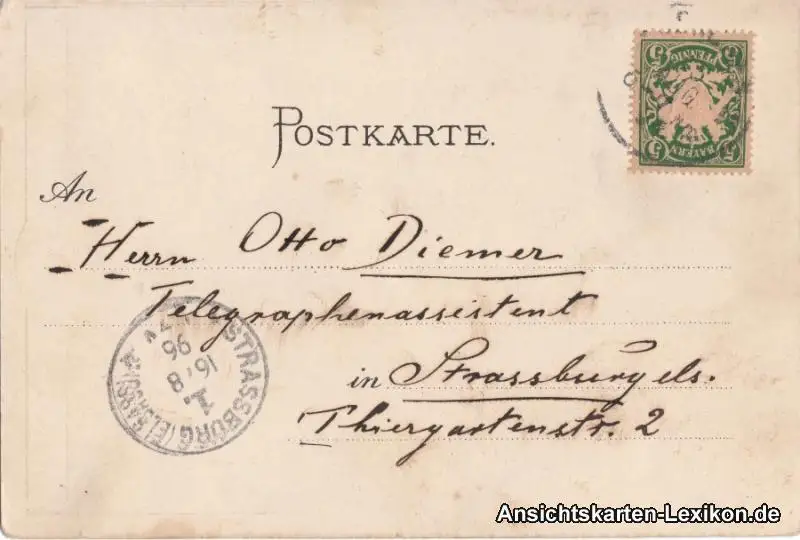 POSTKARTE.
5 PFENNIG 5
5 BAYERN 5
An
Herrn Otto Diemer
Telegraphenassistent
in Strassburg els.
Thiergartenstr. 2
STRASSBURG (ELSASS)
1.
16.8
96
Ansichtskarten-Lexikon.de